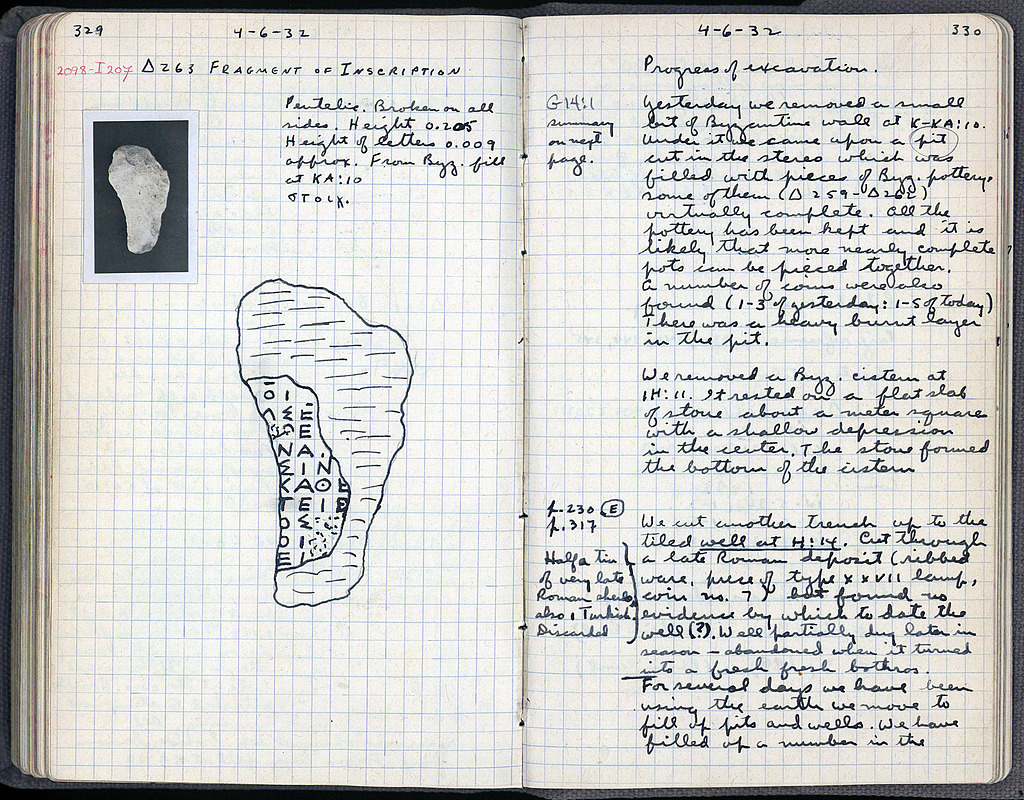 329
4-6-32
2098-I207 Δ263 FRAGMENT OF INSCRIPTION
Pentelic. Broken on all
sides. Height 0.205
Height of letters 0.009
approx. From Byz. fill
at KA:10
ΣTOIX.
4-6-32
330
Progress of excavation.
G14:1
summary
on next
page.
Yesterday we removed a small
bit of Byzantine wall at K-KA:10.
Under it we came upon a pit
cut in the stereo which was
filled with pieces of Byz. pottery,
some of them (Δ259-Δ262)
virtually complete. All the
pottery has been kept and it is
likely that more nearly complete
pots can be pieced together.
A number of coins were also
found (1-3 of yesterday: 1-5 of today)
There was a heavy burnt layer
in the pit.
We removed a Byz. cistern at
IH:11. It rested on a flat slab
of stone about a meter square
with a shallow depression
in the center. The stone formed
the bottom of the cistern
p.230 E
p.317
We cut another trench up to the
tiled well at H:14. Cut through
a late Roman deposit (ribbed
ware, piece of type XXVII lamp,
coin no. 7) but found no
evidence by which to date the
well(?). Well partially dug later in
season - abandoned when it turned
into a fresh fresh bothros.
Half a tin
of very late
Roman sherds
also 1 Turkish.
Discarded
For several days we have been
using the earth we move to
fill up pits and wells. We have
filled up a number in the